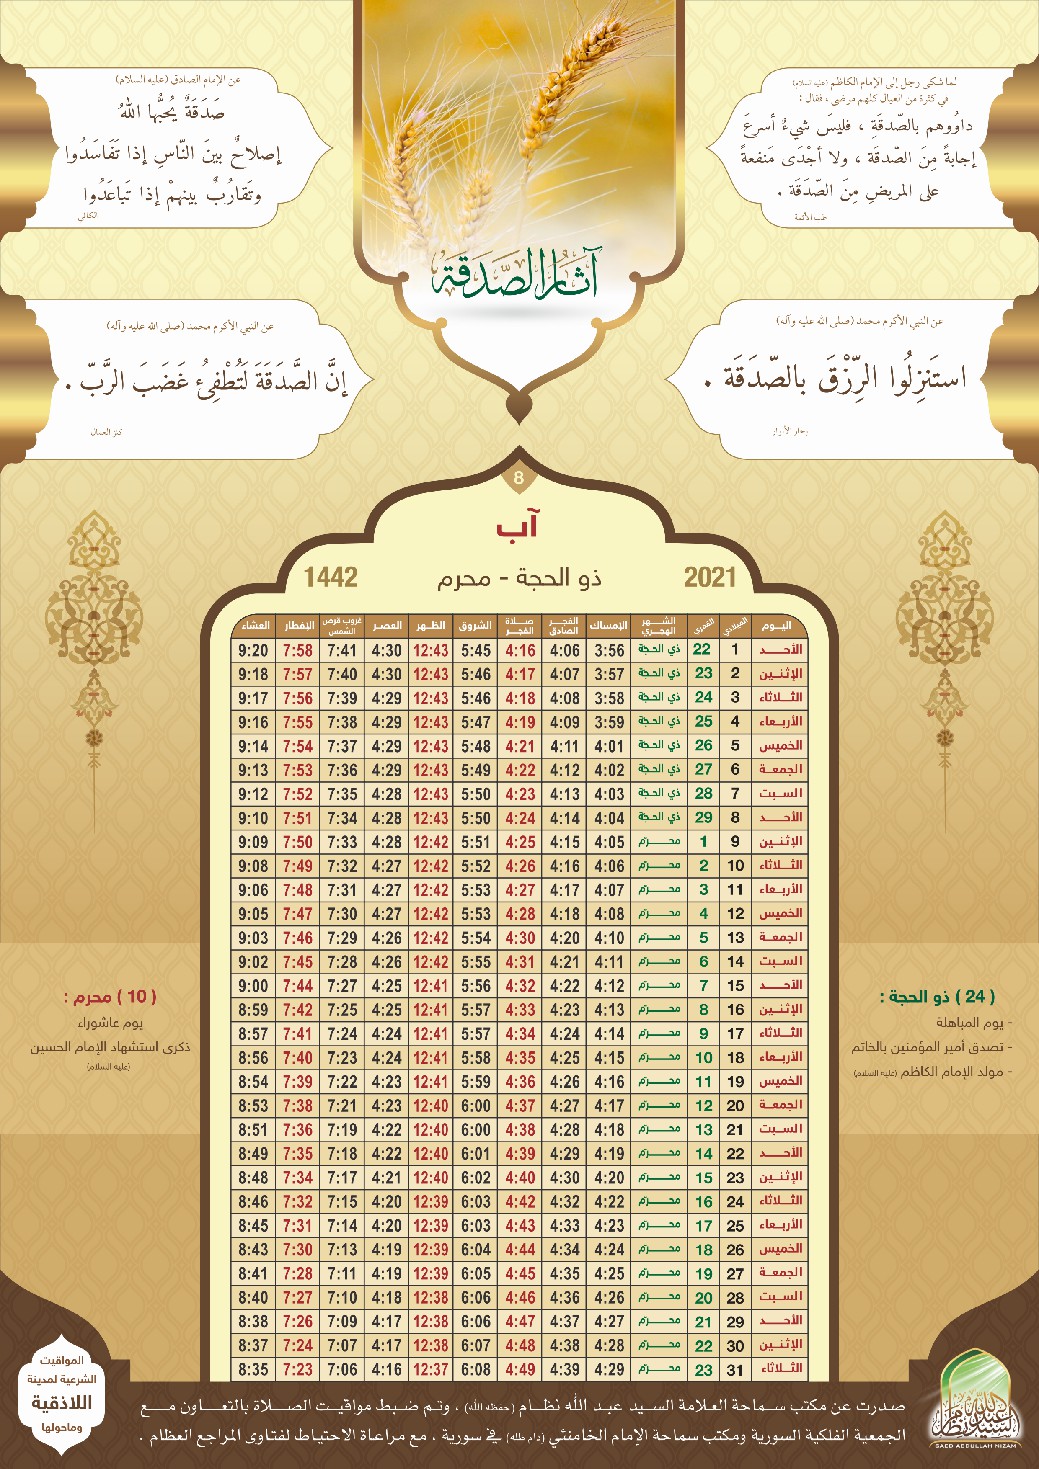 لما شكى رجل إلى الإمام الكاظم (عليه السلام)
في كثرة من العيال كلهم مرضى ، فقال :
داوُوهم بالصّدقَةِ ، فليسَ شيءٌ أسرعَ
إجابةً مِنَ الصّدقَة ، ولا أجْدَى مَنفعةً
على المريضِ مِنَ الصّدَقَة .
طب الأئمة
عن الإمام الصادق (عليه السلام)
صَدَقَةٌ يُحبُّها اللهُ
إصلاحٌ بينَ النّاسِ إذا تَفَاسَدُوا
وتَقارُبٌ بينهمْ إذا تَباعَدُوا
الكافي
آثار الصّدقة
عن النبي الأكرم محمد (صلى الله عليه وآله)
استَنزِلُوا الرِّزْقَ بالصّدَقَة .
بحار الأنوار
عن النبي الأكرم محمد (صلى الله عليه وآله)
إنَّ الصَّدَقَةَ لَتُطْفِئُ غَضَبَ الرَّبّ .
كنز العمال
8
آب
2021 ذو الحجة - محرم 1442
اليوم الميلادي القمري الشهر الهجري الإمساك الفجر الصادق صلاة الفجر الشروق الظهر العصر غروب قرص الشمس الإفطار العشاء
الأحد 1 22 ذي الحجة 3:56 4:06 4:16 5:45 12:43 4:30 7:41 7:58 9:20
الإثنين 2 23 ذي الحجة 3:57 4:07 4:17 5:46 12:43 4:30 7:40 7:57 9:18
الثلاثاء 3 24 ذي الحجة 3:58 4:08 4:18 5:46 12:43 4:29 7:39 7:56 9:17
الأربعاء 4 25 ذي الحجة 3:59 4:09 4:19 5:47 12:43 4:29 7:38 7:55 9:16
الخميس 5 26 ذي الحجة 4:01 4:11 4:21 5:48 12:43 4:29 7:37 7:54 9:14
الجمعة 6 27 ذي الحجة 4:02 4:12 4:22 5:49 12:43 4:29 7:36 7:53 9:13
السبت 7 28 ذي الحجة 4:03 4:13 4:23 5:50 12:43 4:28 7:35 7:52 9:12
الأحد 8 29 ذي الحجة 4:04 4:14 4:24 5:50 12:43 4:28 7:34 7:51 9:10
الإثنين 9 1 محرم 4:05 4:15 4:25 5:51 12:42 4:28 7:33 7:50 9:09
الثلاثاء 10 2 محرم 4:06 4:16 4:26 5:52 12:42 4:27 7:32 7:49 9:08
الأربعاء 11 3 محرم 4:07 4:17 4:27 5:53 12:42 4:27 7:31 7:48 9:06
الخميس 12 4 محرم 4:08 4:18 4:28 5:53 12:42 4:27 7:30 7:47 9:05
الجمعة 13 5 محرم 4:10 4:20 4:30 5:54 12:42 4:26 7:29 7:46 9:03
السبت 14 6 محرم 4:11 4:21 4:31 5:55 12:42 4:26 7:28 7:45 9:02
الأحد 15 7 محرم 4:12 4:22 4:32 5:56 12:41 4:25 7:27 7:44 9:00
الإثنين 16 8 محرم 4:13 4:23 4:33 5:57 12:41 4:25 7:25 7:42 8:59
الثلاثاء 17 9 محرم 4:14 4:24 4:34 5:57 12:41 4:24 7:24 7:41 8:57
الأربعاء 18 10 محرم 4:15 4:25 4:35 5:58 12:41 4:24 7:23 7:40 8:56
الخميس 19 11 محرم 4:16 4:26 4:36 5:59 12:41 4:23 7:22 7:39 8:54
الجمعة 20 12 محرم 4:17 4:27 4:37 6:00 12:40 4:23 7:21 7:38 8:53
السبت 21 13 محرم 4:18 4:28 4:38 6:00 12:40 4:22 7:19 7:36 8:51
الأحد 22 14 محرم 4:19 4:29 4:39 6:01 12:40 4:22 7:18 7:35 8:49
الإثنين 23 15 محرم 4:20 4:30 4:40 6:02 12:40 4:21 7:17 7:34 8:48
الثلاثاء 24 16 محرم 4:22 4:32 4:42 6:03 12:39 4:20 7:15 7:32 8:46
الأربعاء 25 17 محرم 4:23 4:33 4:43 6:03 12:39 4:20 7:14 7:31 8:45
الخميس 26 18 محرم 4:24 4:34 4:44 6:04 12:39 4:19 7:13 7:30 8:43
الجمعة 27 19 محرم 4:25 4:35 4:45 6:05 12:39 4:19 7:11 7:28 8:41
السبت 28 20 محرم 4:26 4:36 4:46 6:06 12:38 4:18 7:10 7:27 8:40
الأحد 29 21 محرم 4:27 4:37 4:47 6:06 12:38 4:17 7:09 7:26 8:38
الإثنين 30 22 محرم 4:28 4:38 4:48 6:07 12:38 4:17 7:07 7:24 8:37
الثلاثاء 31 23 محرم 4:29 4:39 4:49 6:08 12:37 4:16 7:06 7:23 8:35
( 24 ) ذو الحجة :
- يوم المباهلة
- تصدق أمير المؤمنين بالخاتم
- مولد الإمام الكاظم (عليه السلام)
( 10 ) محرم :
يوم عاشوراء
ذكرى استشهاد الإمام الحسين
(عليه السلام)
صدرت عن مكتب سماحة العلامة السيد عبد الله نظام (حفظه الله) ، وتم ضبط مواقيت الصلاة بالتعاون مع
الجمعية الفلكية السورية ومكتب سماحة الإمام الخامنئي (دام ظله) في سورية ، مع مراعاة الاحتياط لفتاوى المراجع العظام .
المواقيت
الشرعية لمدينة
اللاذقية
وماحولها
السيد عبد الله نظام
SAED ABDULLAH NIZAM